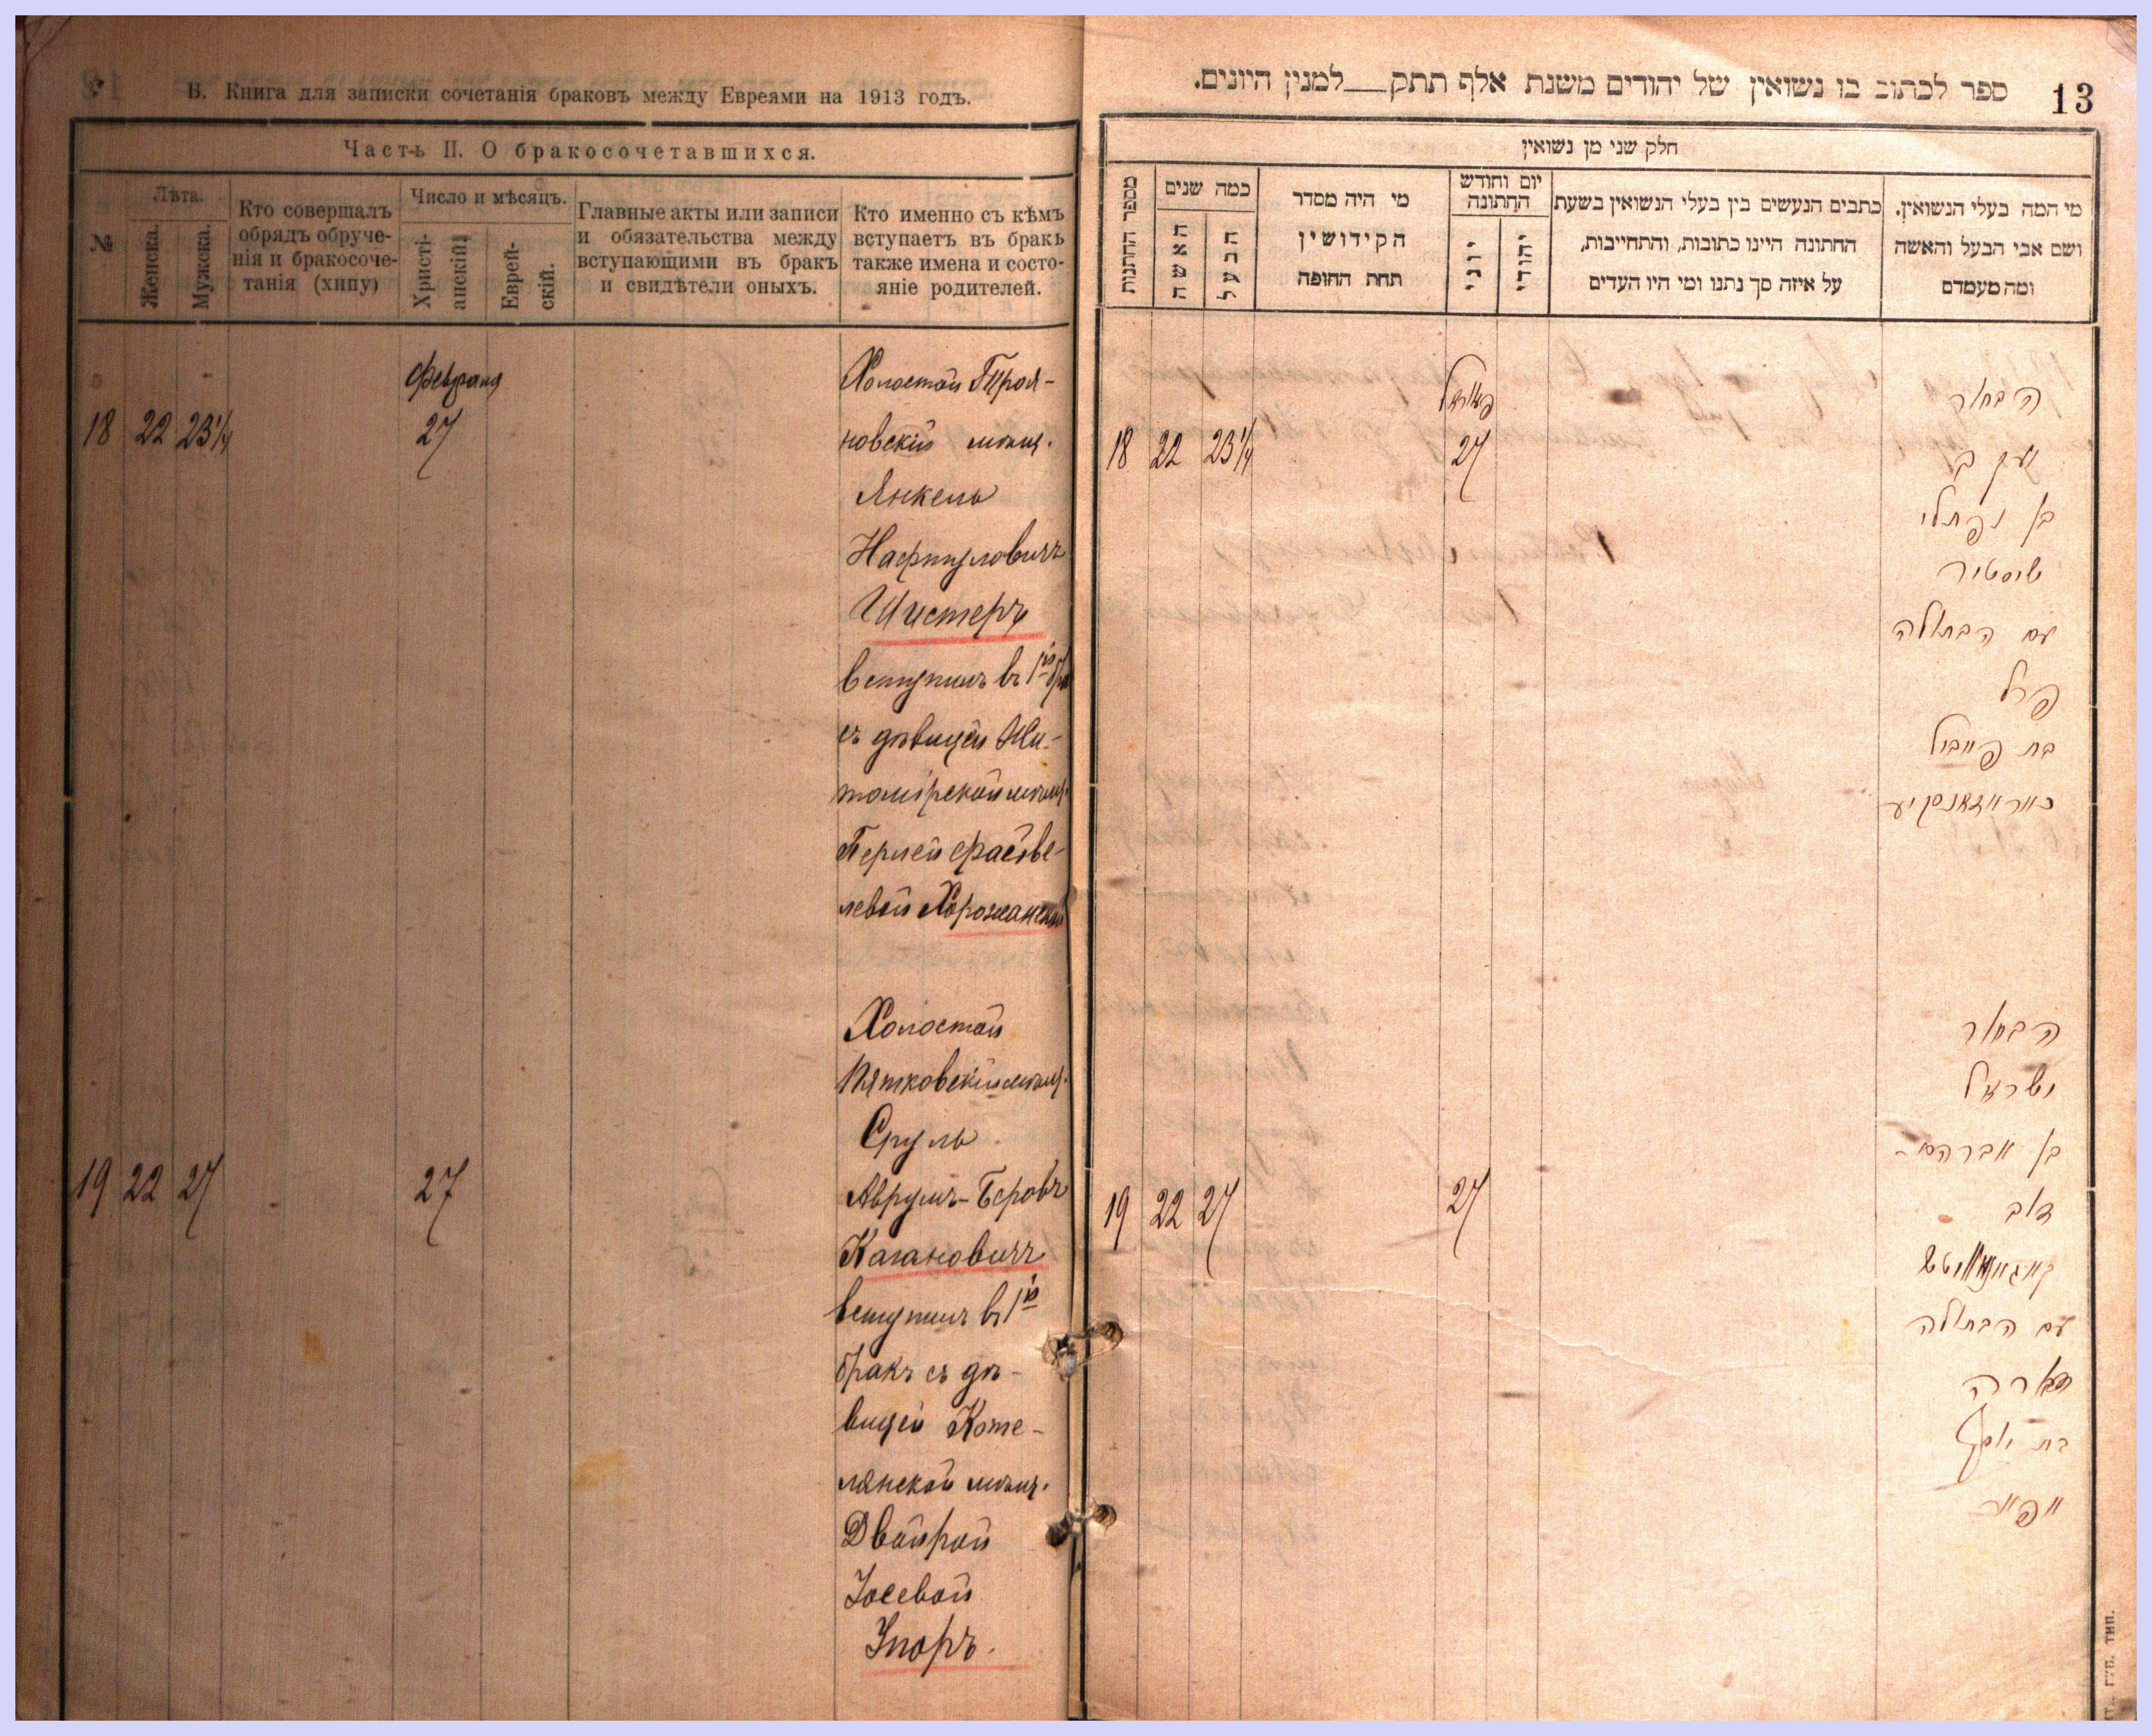 В. Книга для записки сочетанія браковъ между Евреями на 1913 годъ.
Часть II. О бракосочетавшихся.
№
Лѣта.
Женска.
Мужска.
Кто совершалъ
обрядъ обруче-
нія и бракосоче-
танія (хипу)
Число и мѣсяцъ.
Христі-
анскій
Еврей-
скій.
Главные акты или записи
и обязательства между
вступающими въ бракъ
и свидѣтели оныхъ.
Кто именно съ кѣмъ
вступаетъ въ бракъ
также имена и состо-
яніе родителей.
Февраля
18 22 23¼ 27
Холостой Троя-
новскій мѣщ.
Янкель
Нафтуловичъ
Шистеръ
вступилъ въ 1й
съ дѣвицей Жи-
томірской мѣщ.
Перлей Файве-
левой Хорожанской
19 22 27 27
Холостой
Пятковскій мѣщ.
Сруль
Аврумъ-Беровъ
Кагановичъ
вступилъ въ 1й
бракъ съ дѣ-
вицей Коте-
лянской мѣщ.
Двойрой
Іосевой
Упоръ.
13
ספר לכתוב בו נשואין של יהודים משנת אלף תתק__למנין היונים.
חלק שני מן נשואין
מי המה בעלי הנשואין.
ושם אבי הבעל והאשה
ומה מעמדם
כתבים הנעשים בין בעלי הנשואין בשעת
החתונה היינו כתובות, והתחייבות,
על איזה סך נתנו ומי היו העדים
יום וחודש
החתונה
יהודי
יוני
מי היה מסדר
הקידושין
תחת החופה
כמה שנים
הבעל
האשה
מספר החתנות
18 22 23¼ 27
הבחור
יעקב
בן נפתלי
שיסטיר
עם הבתולה
פרל
בת פייביל
19 22 27 27
הבחור
ישראל
בן אברהם-
דוב
עם הבתולה
בת יוסף
ГУБ. ТИП.